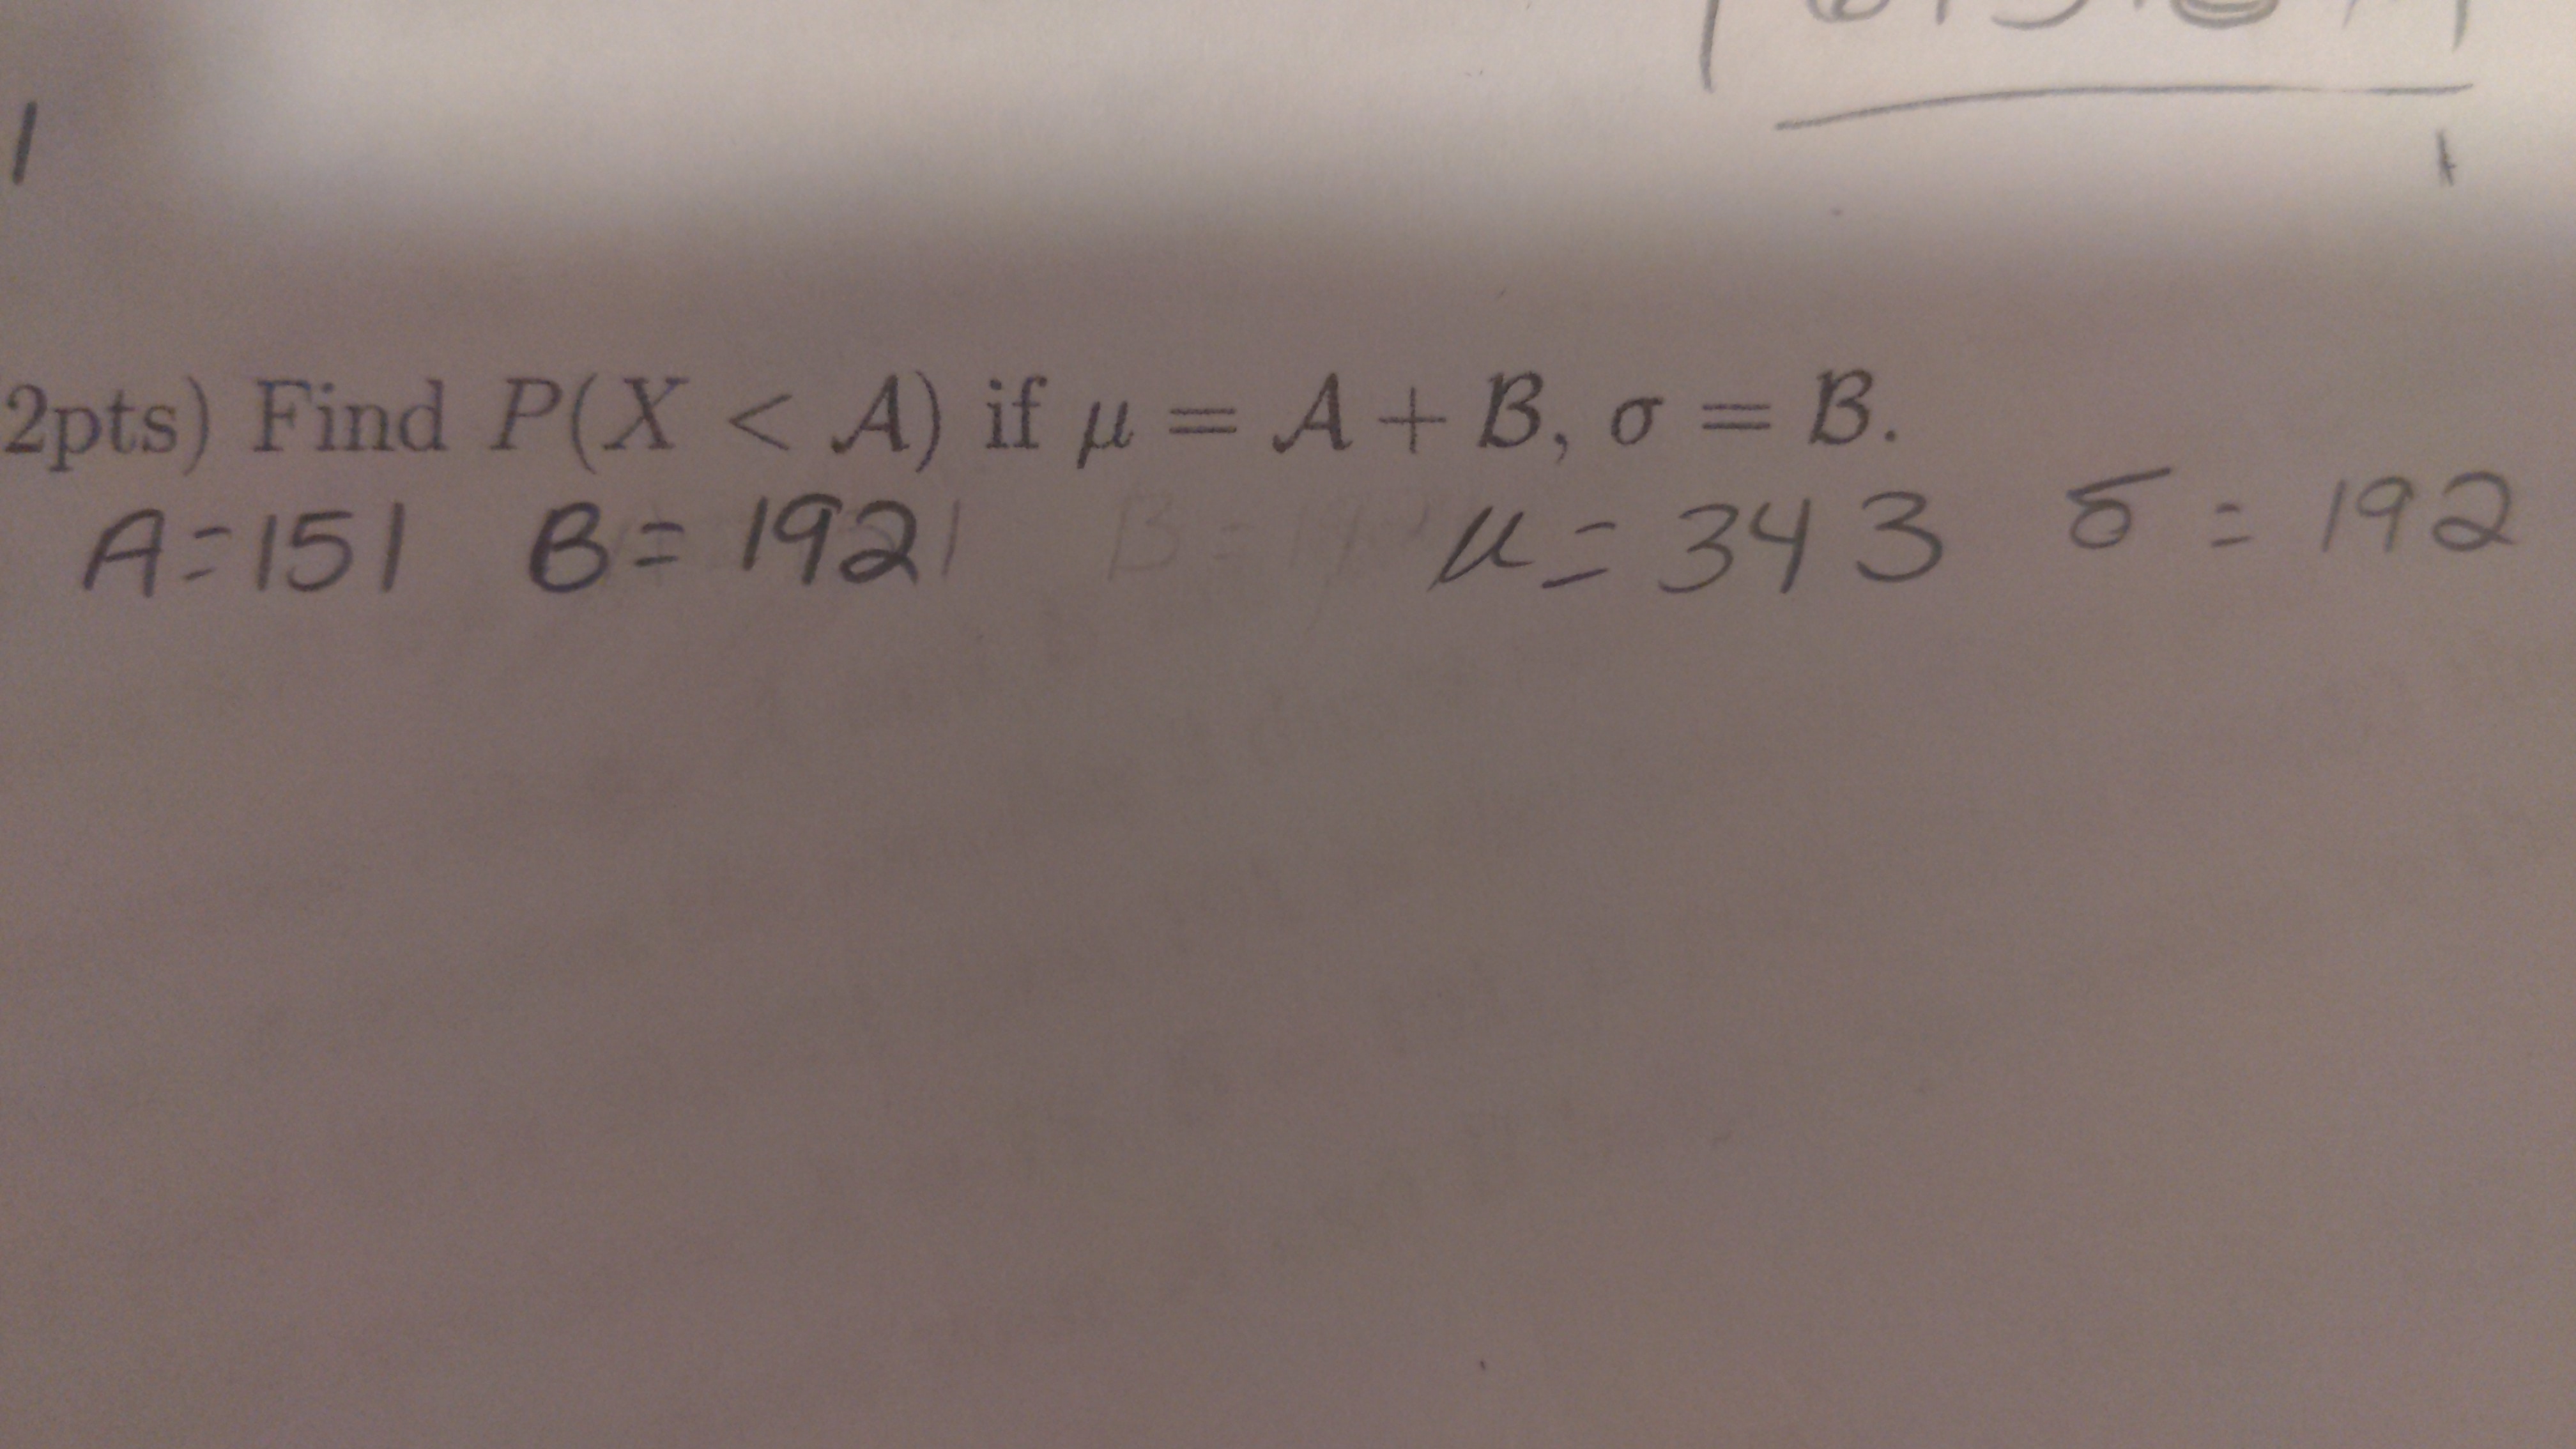 2pts) Find P(X < A) if μ = A + B, σ = B.
A=151 B=192 μ=343 σ=192